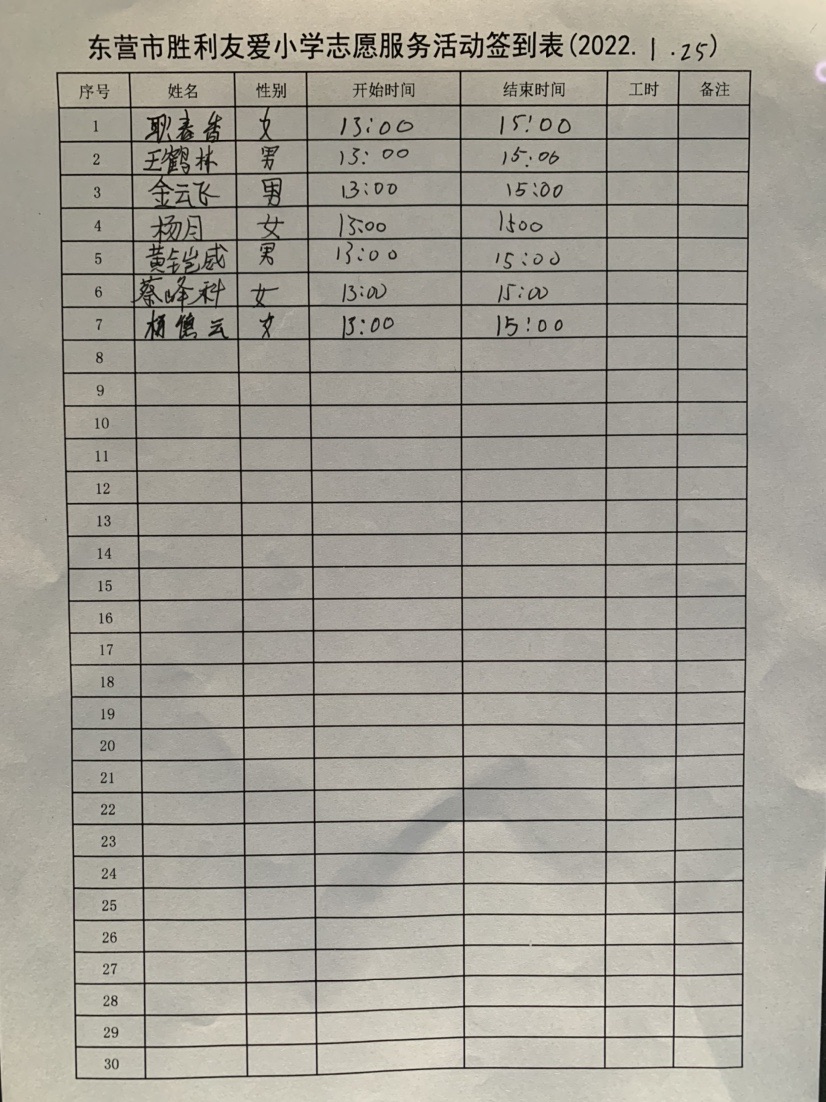 东营市胜利友爱小学志愿服务活动签到表(2022.1.25)
序号 姓名 性别 开始时间 结束时间 工时 备注
1 职春香 女 13:00 15:00
2 王鹤林 男 13:00 15:00
3 金云飞 男 13:00 15:00
4 杨月 女 13:00 1500
5 黄铠威 男 13:00 15:00
6 蔡峰科 女 13:00 15:00
7 女 13:00 15:00
8
9
10
11
12
13
14
15
16
17
18
19
20
21
22
23
24
25
26
27
28
29
30